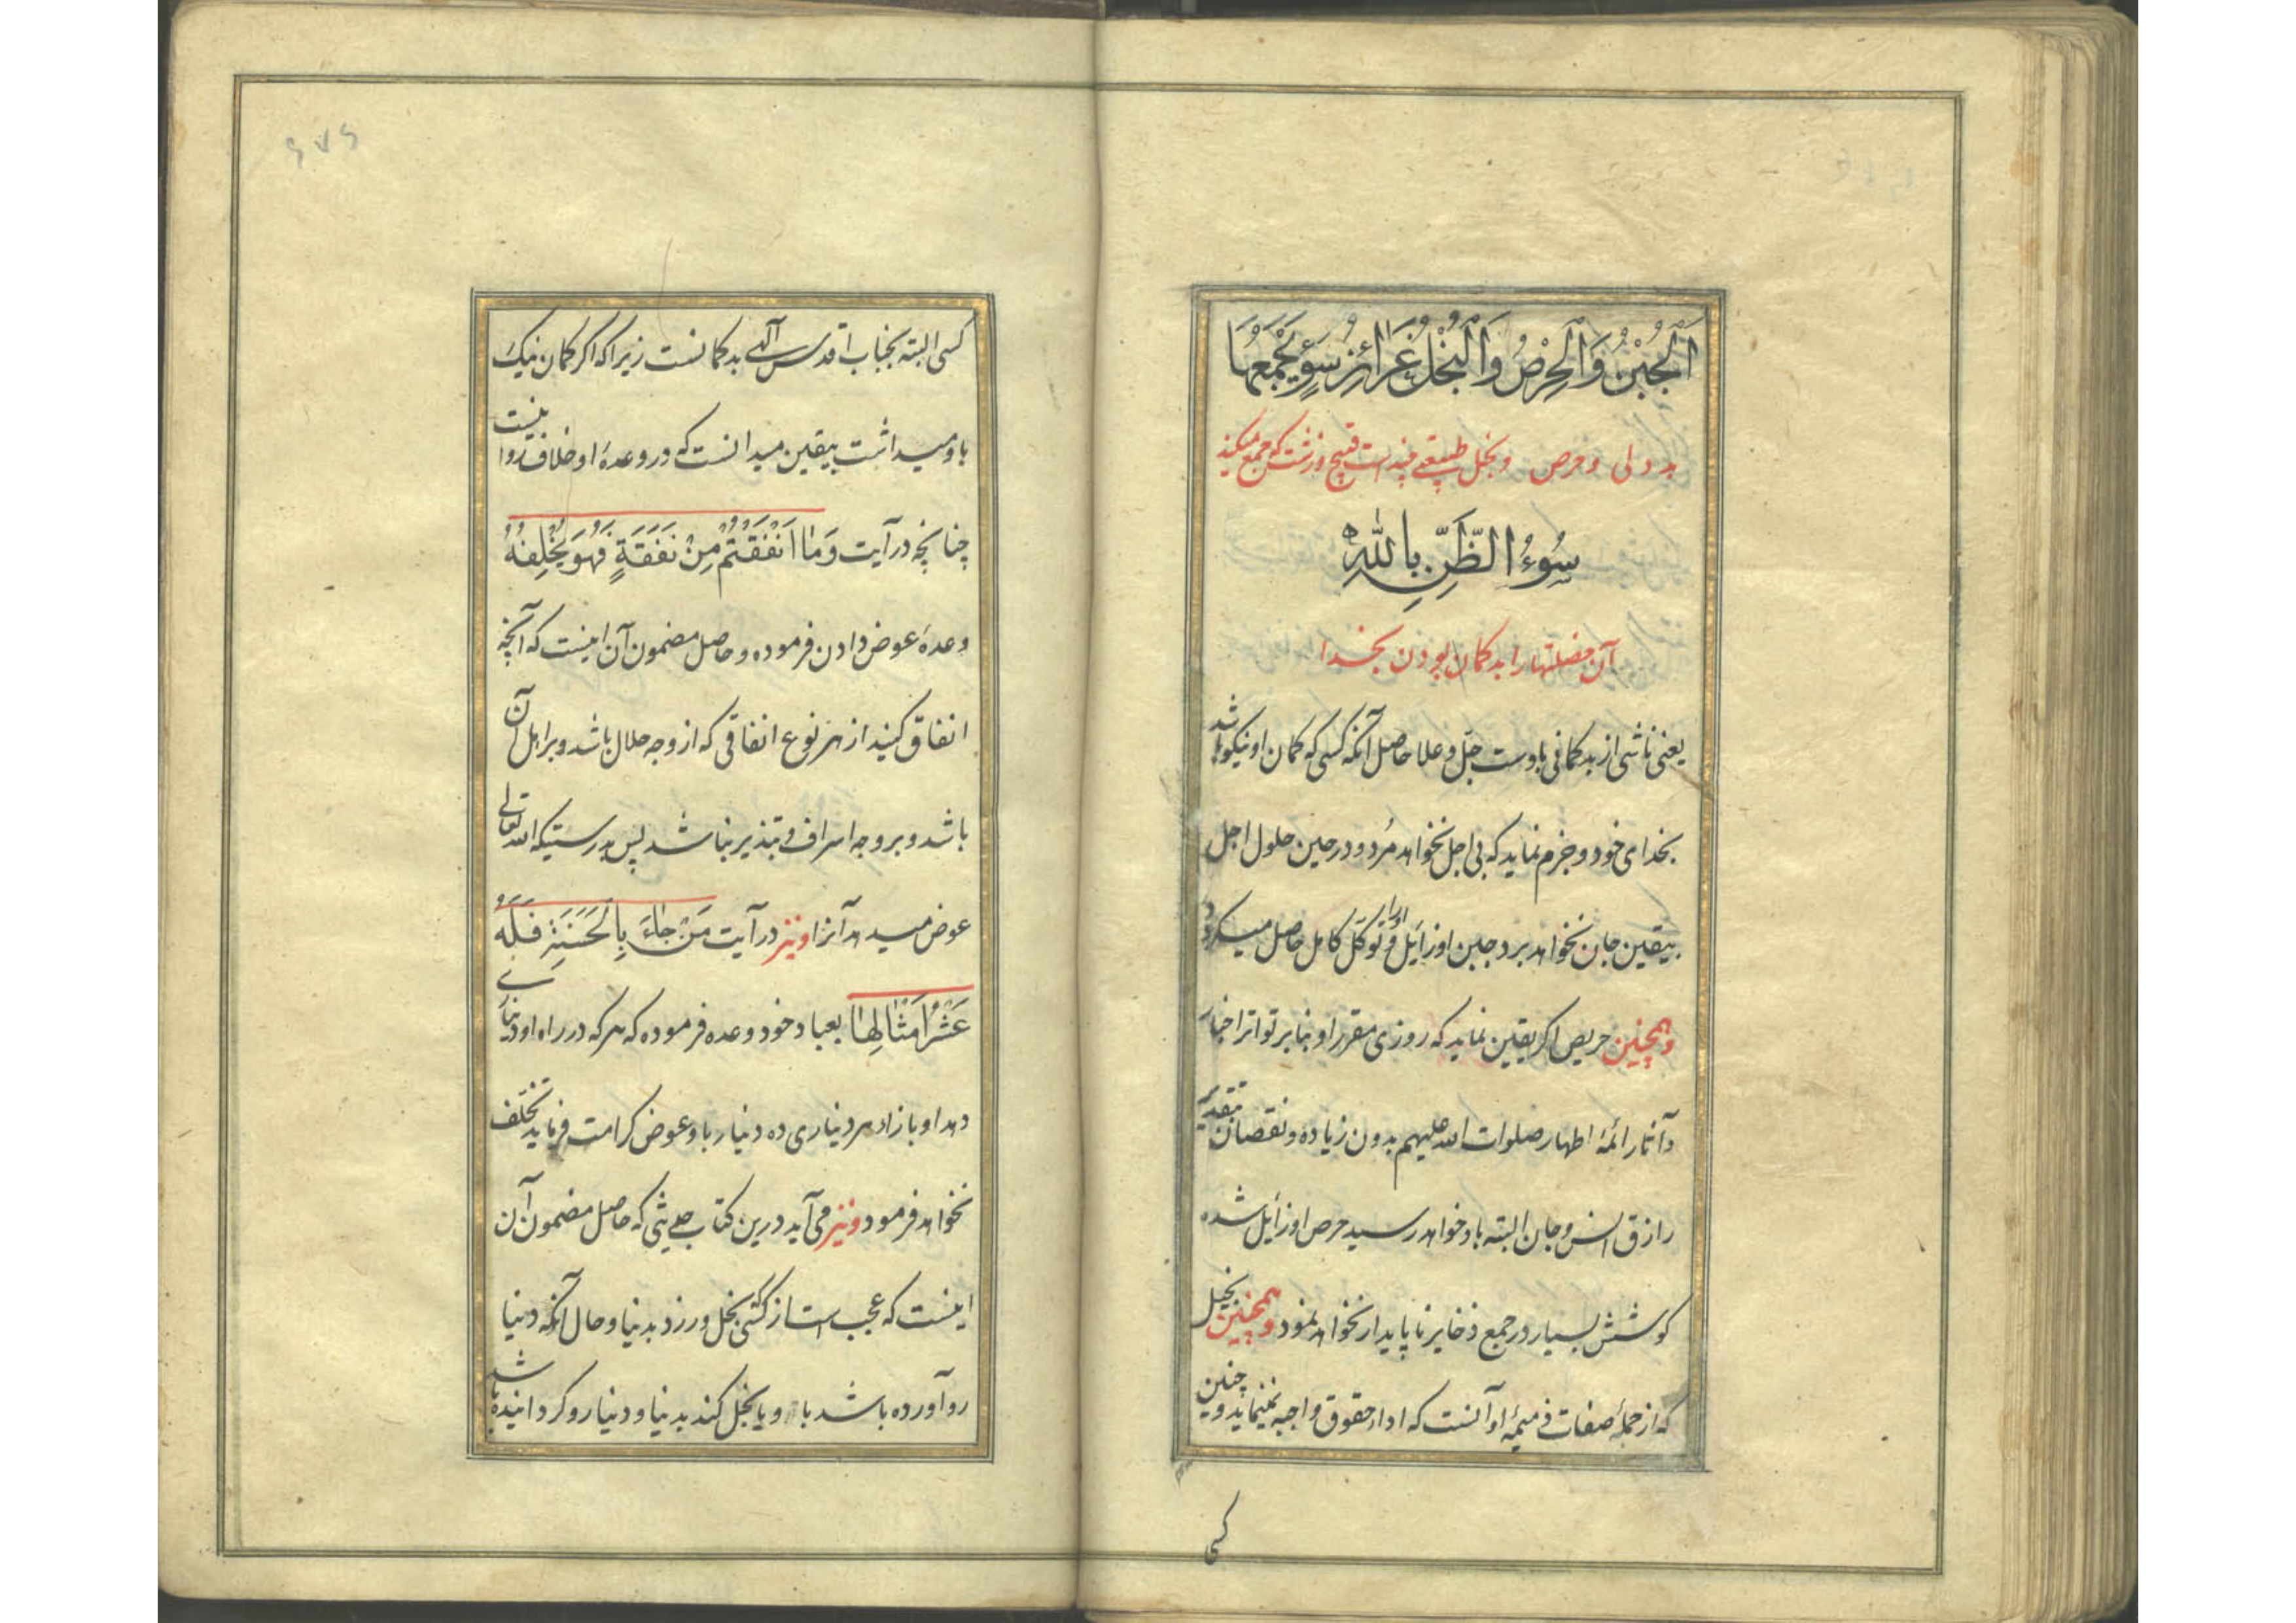 اَلْجُبْنُ وَالْحِرْصُ وَالْبُخْلُ غَرَائِزُ سُوْءٍ يَجْمَعُهَا
بددلی و حرص و بخل طبیعتی چند است قبیح و زشت که جمع میکند
سُوْءُ الظَّنِّ بِاللّٰهِ
آن خصلتها را بدکمان بودن بخدا
یعنی ناشی از بدکمانی باوست جلّ و علا حاصل آنکه کسی که کمان او نیکو باشد
بخدای خود و جزم نماید که بی اجل نخواهد مُرد و در حین حلول اجل
بیقین جان نخواهد برد جبن او زایل و او را توکّل کامل حاصل میکردد
و همچنین حریص اکر یقین نماید که روزی مقرر او بنابر تواتر اخبار
و آثار ائمهٔ اطهار صلوات الله علیهم بدون زیاده و نقصان بتقدیر
رازق انس و جان البته باو خواهد رسید حرص او زایل شده
کوشش بسیار در جمع ذخایر ناپایدار نخواهد نمود و همچنین بخیل
که از جملهٔ صفات ذمیمهٔ او آنست که ادا حقوق واجبه نمینماید و چنین
کسی
کسی البته بجناب اقدس الهی بدکمانست زیرا که اکر کمان نیک
باو میداشت بیقین میدانست که در وعدهٔ او خلاف روا نیست
چنانچه در آیت وَمَا اَنْفَقْتُمْ مِنْ نَفَقَةٍ فَهُوَ يُخْلِفُهُ
وعدهٔ عوض دادن فرموده و حاصل مضمون آن اینست که آنچه
انفاق کنید از هر نوع انفاقی که از وجه حلال باشد و بر اهل آن
باشد و بر وجه اسراف و تبذیر نباشد پس بدرستیکه الله تعالی
عوض میدهد آنرا و نیز در آیت مَنْ جَاءَ بِالْحَسَنَةِ فَلَهُ
عَشْرُ اَمْثَالِهَا بعباد خود وعده فرموده که هر که در راه او دیناری
دهد او بازاء هر دیناری ده دینار باو عوض کرامت فرماید تخلّف
نخواهد فرمود و نیز می آید درین کتاب حدیثی که حاصل مضمون آن
اینست که عجب است از کسی بخل ورزد بدنیا و حال آنکه دنیا
رو آورده باشد باو و یا بخل کند بدنیا و دنیا رو کردانیده باشد